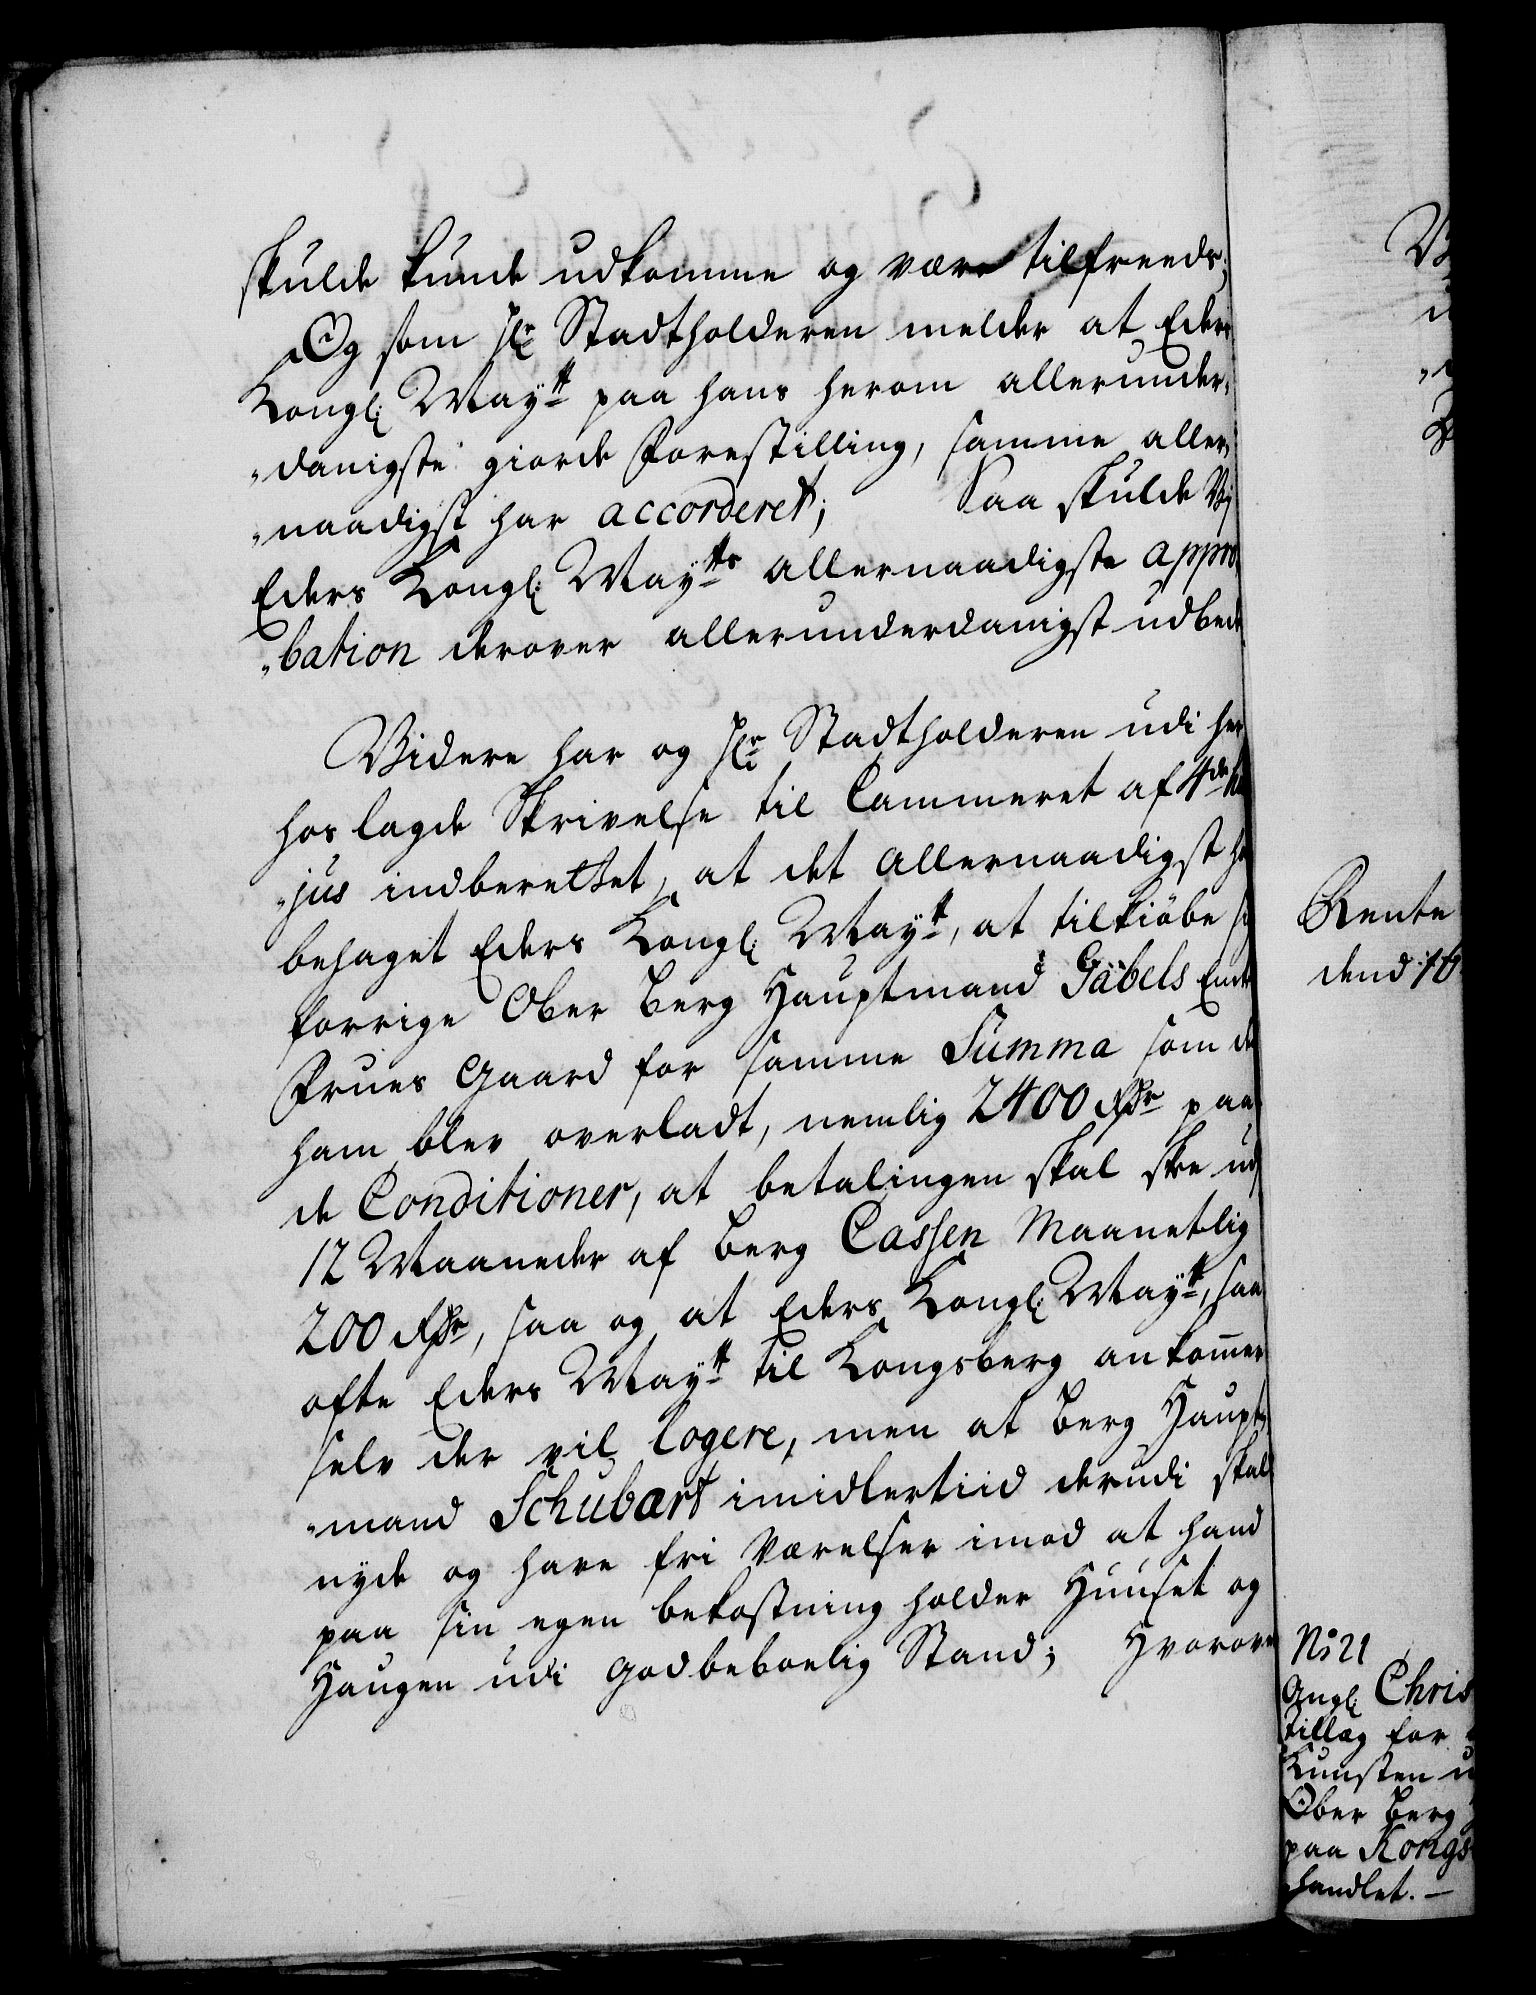 skulde kunde udkomme og være tilfreeds;
Og som Hr Stadtholderen melder at Eders
Kongl: Maytt paa hans herom allerunder-
„danigste giorde Forestilling, samme aller-
„naadigst har accorderet; Saa skulde Vj
Eders Kongl: Maytts allernaadigste appro
„bation derover allerunderdanigst udbede
Videre har og Hr Stadtholderen udi her
hos lagde Skrivelse til Cammeret af 4de
„jus indberettet, at det allernaadigst ha
behaget Eders Kongl: Maytt, at tilkiöbe si
forrige Ober Berg Hauptmand Gabels Enke
Frues Gaard for samme Summa som de
ham blev overladt, nemlig 2400 Rdr paa
de Conditioner, at betalingen skal skee udj
12 Maaneder af Berg Cassen Maanetlig
200 Rdr, saa og at Eders Kongl: Maytt, saa
ofte Eders Maytt til Kongsberg ankommer
selv der vil logere, men at Berg Haupt-
„mand Schubart imidlertiid derudi skal
nyde og have fri Værelser imod at hand
paa sin egen bekostning holder Huuset og
Haugen udi Godbeboelig Stand; Hvorove
Rente
dend 16
No 21
Angl: Chris
tillæg for
Kunsten u
Ober Berg
paa Kongs
handlet. —